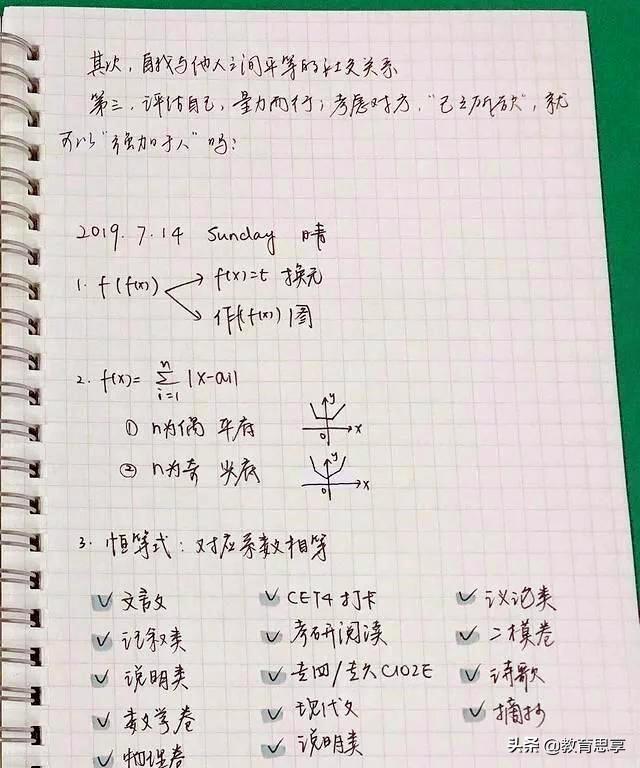 其次，自我与他人之间平等的社交关系
第三，评估自己，量力而行；考虑对方，"己之所欲"，就
可以"强加于人"吗？
2019.7.14 Sunday 晴
1. f(f(x))
f(x)=t 换元
作f(f(x))图
2. f(x)= n∑i=1 |x-ai|
① n为偶 平底
y
0 x
② n为奇 尖底
y
0 x
3. 恒等式：对应系数相等
✓ 文言文 ✓ CET4 打卡 ✓ 议论类
✓ 记叙类 ✓ 考研阅读 ✓ 二模卷
✓ 说明类 ✓ 专四/专八 ✓ 诗歌
✓ 数学卷 ✓ 现代文 ✓ 摘抄
✓ 物理卷 ✓ 说明类
头条 @教育思享